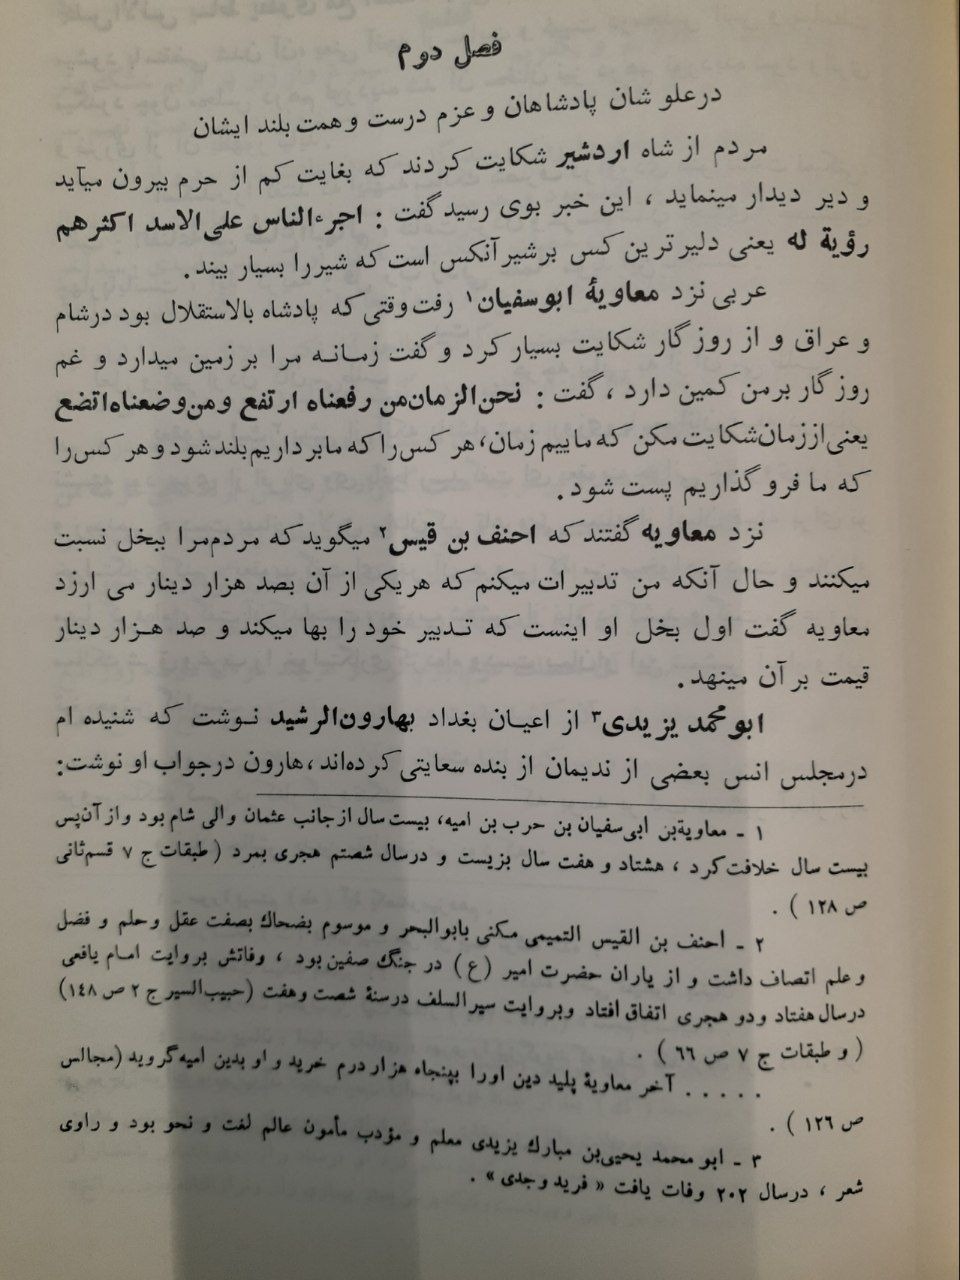 فصل دوم
درعلو شان پادشاهان و عزم درست و همت بلند ایشان
مردم از شاه اردشیر شکایت کردند که بغایت کم از حرم بیرون میآید
و دیر دیدار مینماید ، این خبر بوی رسید گفت : اجرءالناس علی‌الاسد اکثرهم
رؤیة له یعنی دلیرترین کس برشیر آنکس است که شیر را بسیار بیند .
عربی نزد معاویهٔ ابوسفیان۱ رفت وقتی که پادشاه بالاستقلال بود درشام
و عراق و از روزگار شکایت بسیار کرد و گفت زمانه مرا بر زمین میدارد و غم
روزگار برمن کمین دارد ، گفت : نحن‌الزمان‌من رفعناه ارتفع ومن‌وضعناه‌اتضع
یعنی‌اززمان‌شکایت مکن که ماییم زمان، هر کس‌را که مابرداریم‌بلندشود و هر کس‌را
که ما فرو گذاریم پست شود .
نزد معاویه گفتند که احنف بن قیس۲ میگوید که مردم‌مرا ببخل نسبت
میکنند و حال آنکه من تدبیرات میکنم که هریکی از آن بصد هزار دینار می ارزد
معاویه گفت اول بخل او اینست که تدبیر خود را بها میکند و صد هزار دینار
قیمت بر آن مینهد .
ابومحمد یزیدی۳ از اعیان بغداد بهارون‌الرشید نوشت که شنیده ام
درمجلس انس بعضی از ندیمان از بنده سعایتی کرده‌اند ، هارون درجواب او نوشت:
۱ ـ معاویة‌بن ابی‌سفیان بن حرب بن امیه، بیست سال ازجانب عثمان والی شام بود و ازآن‌پس
بیست سال خلافت‌کرد ، هشتاد و هفت سال بزیست و درسال شصتم هجری بمرد ( طبقات ج ۷ قسم‌ثانی
ص ۱۲۸ ) .
۲ ـ احنف بن القیس التمیمی مکنی بابوالبحر و موسوم بضحاك بصفت عقل و حلم و فضل
و علم اتصاف داشت و از یاران حضرت امیر (ع) در جنگ صفین بود ، وفاتش بروایت امام یافعی
درسال هفتاد ودو هجری اتفاق افتاد وبروایت سیرالسلف درسنهٔ شصت وهفت (حبیب‌السیر ج ۲ ص ۱۴۸)
( و طبقات ج ۷ ص ۶۶ ) .
. . . . . آخر معاویهٔ پلید دین اورا بپنجاه هزار درم خرید و او بدین امیه‌گروید (مجالس
ص ۱۲۶ ) .
۳ ـ ابو محمد یحیی‌بن مبارك یزیدی معلم و مؤدب مأمون عالم لغت و نحو بود و راوی
شعر ، درسال ۲۰۲ وفات یافت « فرید وجدی » .